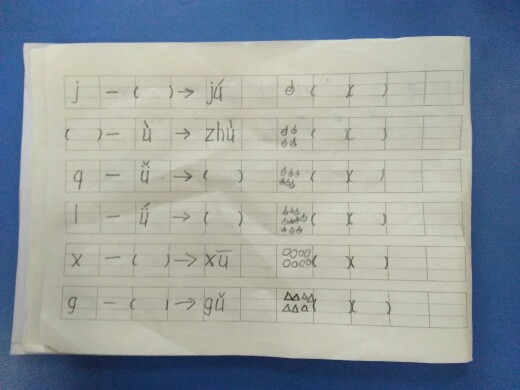 j — ( ) → jú ( )( )
( ) — ù → zhù ( )( )
q — ǚ → ( ) ( )( )
l — ǘ → ( ) ( )( )
x — ( ) → xū ( )( )
g — ( ) → gǔ ( )( )